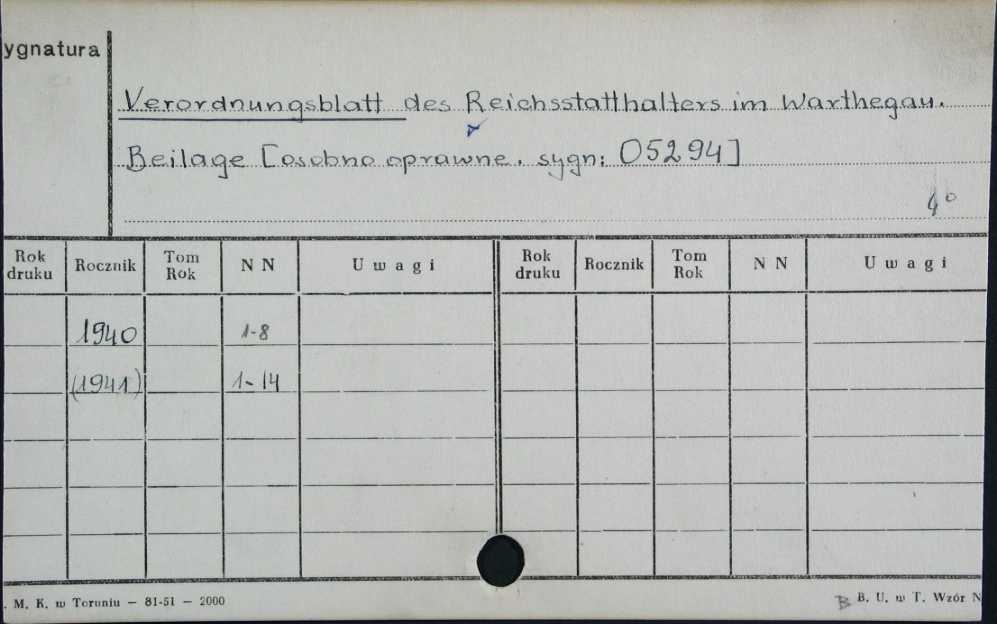 ygnatura
Verordnungsblatt des Reichsstatthalters im Warthegau.
Beilage [osobno oprawne. sygn: 05294]
4°
Rok druku Rocznik Tom Rok N N U w a g i Rok druku Rocznik Tom Rok N N U w a g i
1940 1-8
(1941) 1-14
. M. K. w Toruniu — 81-51 — 2000
B B. U. w T. Wzór N